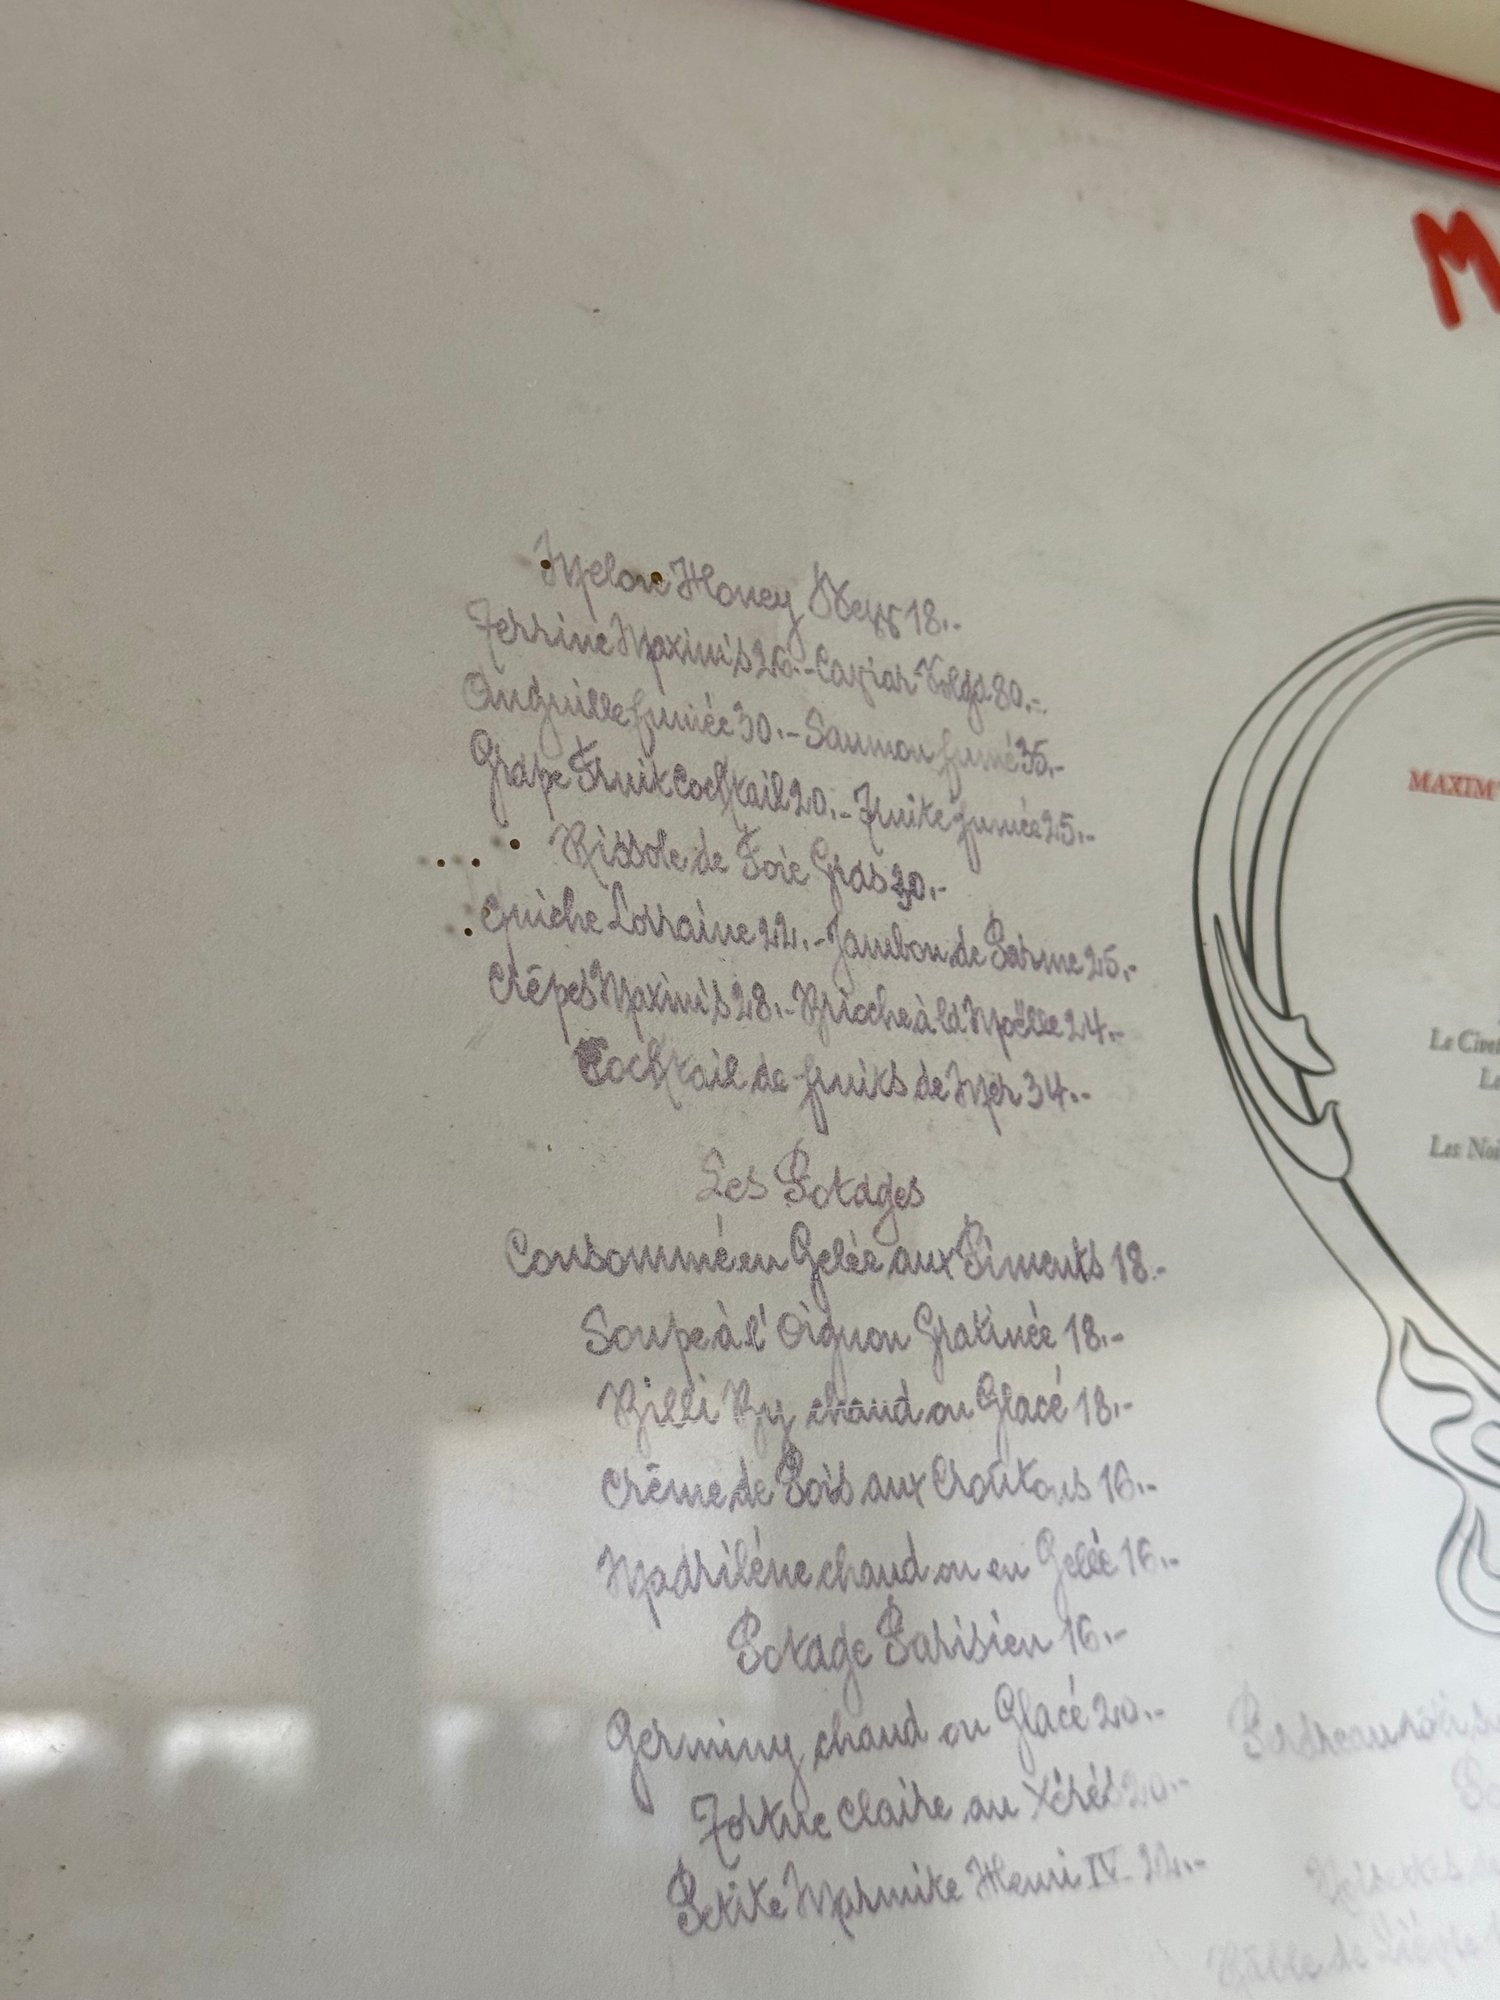 Melon Honey Dew 18.-
Terrine Maxim's 26.- Caviar Volga 80.-
Anguille fumée 30.- Saumon fumé 35.-
Grape Fruit Cocktail 20.- Truite fumée 25.-
Rissole de Foie Gras 30.-
Quiche Lorraine 22.- Jambon de Parme 25.-
Crêpes Maxim's 28.- Brioche à la Moëlle 24.-
Cocktail de fruits de Mer 34.-
Les Potages
Consommé en Gelée aux Piments 18.-
Soupe à l'Oignon Gratinée 18.-
Billi By chaud ou Glacé 18.-
Crème de Pois aux Croûtons 16.-
Madrilène chaud ou en Gelée 16.-
Potage Parisien 16.-
Germiny chaud ou Glacé 20.-
Tortue Claire au Xérès 20.-
Petite Marmite Henri IV 22.-
M
MAXIM'
Le Civet
Le
Les Noi
Perdreau rôti
Noisettes de
Râble de